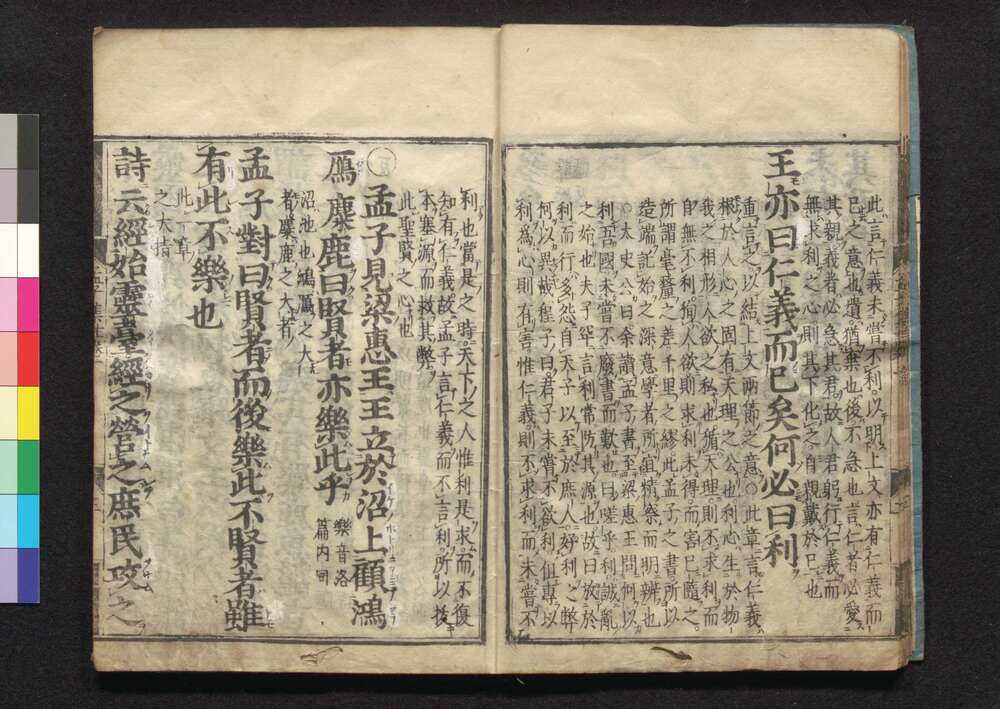 此言仁義未嘗不利以明上文亦有仁義而
已之意也遺猶棄也後不急也言仁者必愛
其親義者必急其君故人君躬行仁義而
無求利之心則其下化之自親戴於已也
王亦曰仁義而已矣何必曰利
重言之以結上文兩節之意○此章言仁義
根於人心之固有天理之公也利心生於物
我之相形人欲之私也循天理則不求利而
自無不利徇人欲則求利未得而害已隨之
所謂毫釐之差千里之繆此孟子之書所以
造端託始之深意學者所宜精察而明辨也
○太史公曰余讀孟子書至梁惠王問何以
利吾國未嘗不廢書而歎也曰嗟乎利誠亂
之始也夫子罕言利常防其源也故曰放於
利而行多怨自天子以至於庶人好利之弊
何以異哉程子曰君子未嘗不欲利但專以
利為心則有害惟仁義則不求利而未嘗不
利也當是之時天下之人惟利是求而不復
知有仁義故孟子言仁義而不言利所以拔
本塞源而救其弊
此聖賢之心也
○孟子見梁惠王王立於沼上顧鴻
鴈麋鹿曰賢者亦樂此乎
樂音洛
篇内同
沼池也鴻鴈之大
者麋鹿之大者
孟子對曰賢者而後樂此不賢者雖
有此不樂也
此一章
之大指
詩云經始靈臺經之營之庶民攻之